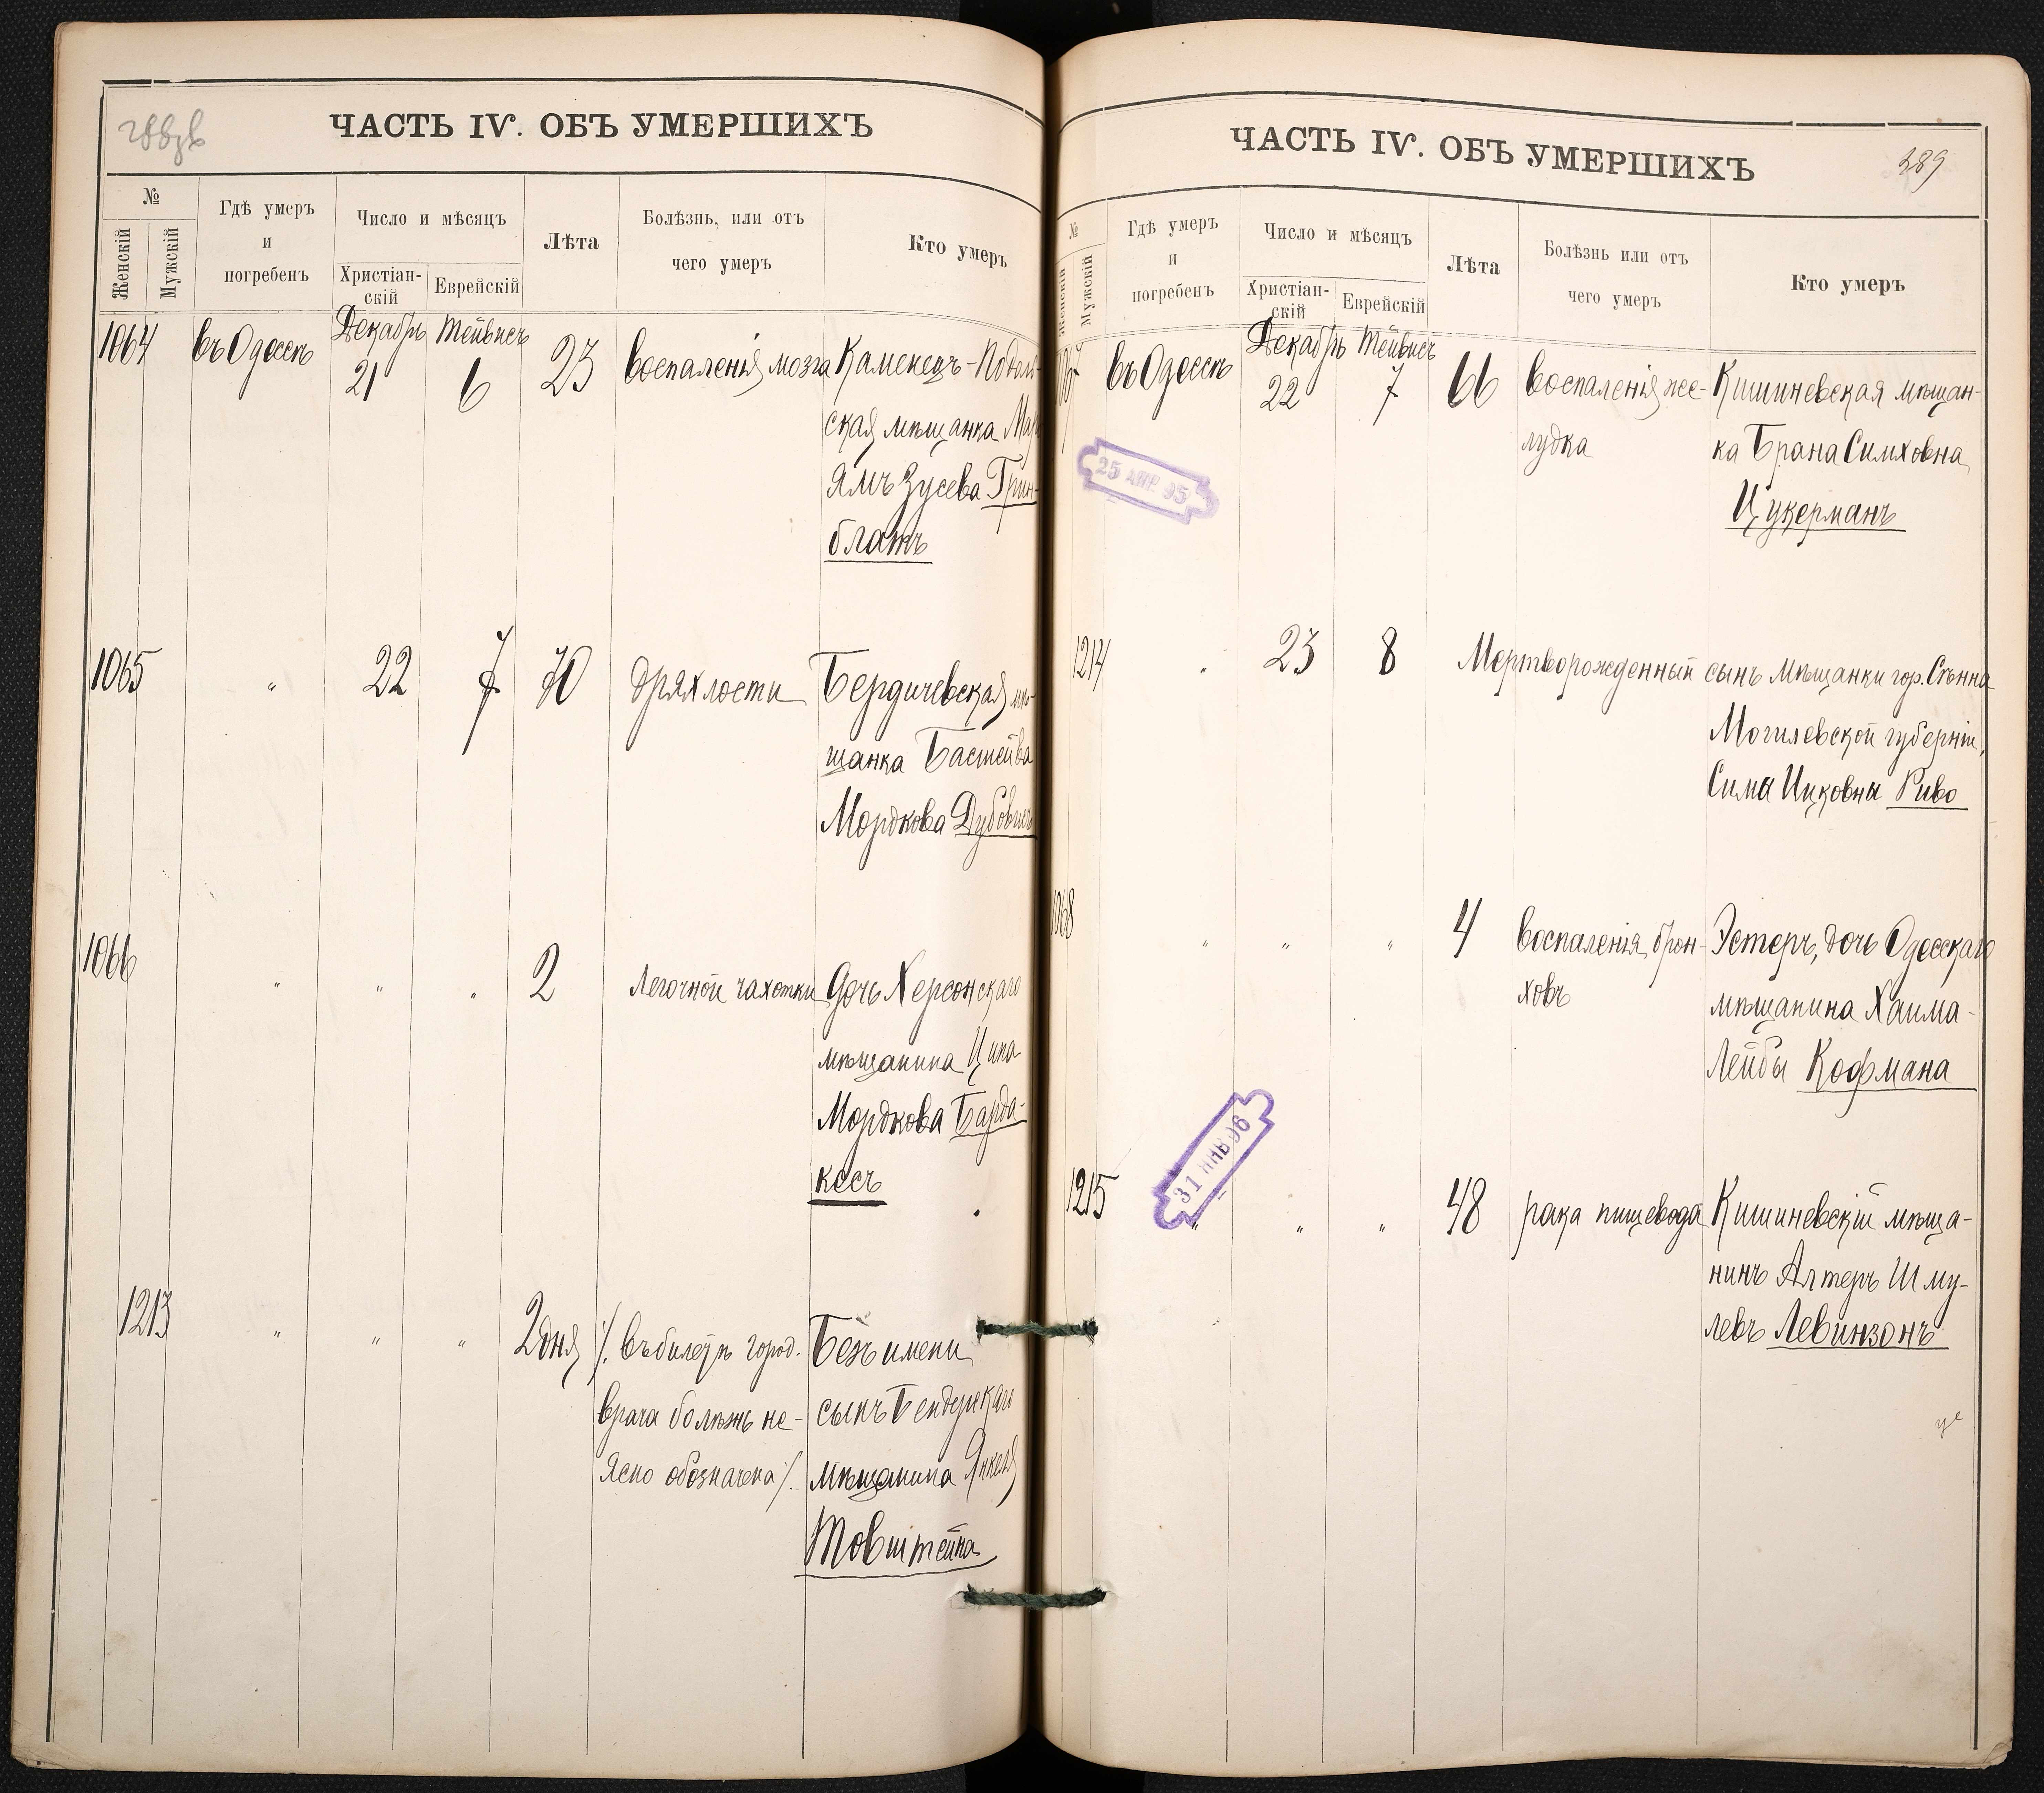 ЧАСТЬ IV. ОБЪ УМЕРШИХЪ
№
Женскій
Мужскій
Гдѣ умеръ
и
погребенъ
Число и мѣсяцъ
Христіан-
скій
Еврейскій
Лѣта
Болѣзнь, или отъ
чего умеръ
Кто умеръ
Декабрь Тейвисъ
1064 въ Одессѣ 21 6 23 воспаленія мозга Каменецъ-Подоль-
ская мѣщанка Марь
ямъ Зусева Грин-
блатъ
1065 " 22 7 70 дряхлости Бердичевская мѣ-
щанка Бастейва
Мордкова Дубовисъ
1066 " " " 2 легочной чахотки Дочь Херсонскаго
мѣщанина Ципа
Мордкова Барда-
кесъ
1213 " " " 2 дня /. въ билетѣ город. Безъ имени
врача болѣзнь не- сынъ Бендерскаго
ясно обозначена /. мѣщанина Янкеля
Товштейна
ЧАСТЬ IV. ОБЪ УМЕРШИХЪ
389
№
Женскій
Мужскій
Гдѣ умеръ
и
погребенъ
Число и мѣсяцъ
Христіан-
скій
Еврейскій
Лѣта
Болѣзнь или отъ
чего умеръ
Кто умеръ
Декабрь Тейвисъ
1067 въ Одессѣ 22 7 66 воспаленія же- Кишиневская мѣщан-
лудка ка Брана Симховна
Цукерманъ
25 АПР. 95
1214 " 23 8 Мертворожденный сынъ мѣщанки гор. Сѣнна
Могилевской губерніи,
Симы Ицковны Риво
1068 " " " 4 воспаленія брон- Эстеръ, дочь Одесскаго
ховъ мѣщанина Хаима-
Лейбы Кофмана
31 ЯНВ 96
1215 " " " 48 рака пищевода Кишиневскій мѣща-
нинъ Алтеръ Шму-
левъ Левинзонъ